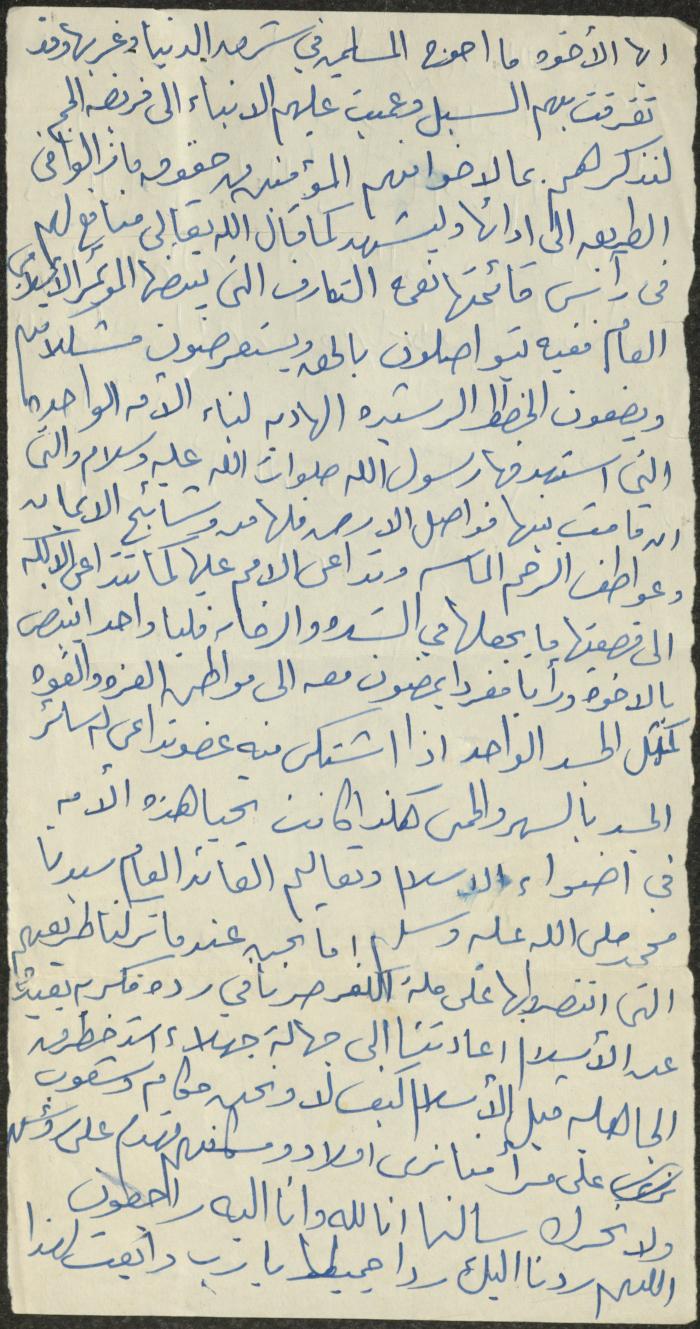 ايها الأخوه ما احوج المسلمين في شرق الدنيا وغربها وقد
تفرقت بهم السبل وعميت عليهم الانباء الى فريضه الحج
لتذكرهم بما لاخوانهم المؤمنين من حقوق مازالوا في
الطريق الى ادائها وليشهدوا كما قال الله تعالى منافع لهم
في رأس قائمتها نعمة التعارف التي يتيحها المؤتمر الاسلامي
العام ففيه يتواصلون بالحق ويستعرضون مشكلاتهم
ويضعون الخطط الرشيده الهاديه لبناء الأمه الواحده
التي استهدفها رسول الله صلوات الله عليه وسلامه والتي
ان قامت بينها فواصل الارض فلها من وشائج الايمان
وعواطف الرحم الماسه وتداعى الامم عليها كما تتداعى الاكله
الى قصعتها ما يجعلها في الشده والرخاء قلبا واحدا ينبض
بالاخوه ورأيا مفردا يمضون معه الى مواطن العزه والقوه
كمثل الجسد الواحد اذا اشتكى منه عضو تداعى له سائر
الجسد بالسهر والحمى هكذا كانت تحيا هذه الأمه
في اضواء الاسلام وتعاليم القائد العام سيدنا
محمد صلى الله عليه وسلم اما نحن عندما تركنا طريقهم
التي انتصروا بها على ملة الكفر صرنا في رده فكريه بعيده
عن الأسلام اعادتنا الى جهالة جهلاء اشد خطر من
الجاهليه قبل الأسلام كيف لا ونحن حكام وشعوب
نقف على مرأ منا نرى اولاد ومساكنهم تهدم على رؤسهم
ولا نحرك ساكنا انا لله وانا اليه راجعون
اللهم ردنا اليك ردا جميلا يا رب وابعث لهذا